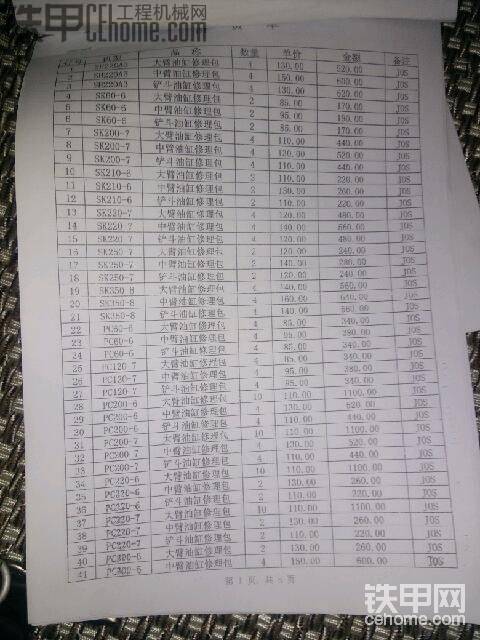 CE 工程机械网
cehome.com
品 称 数量 单价 金额 备注
大臂油缸修理包 4 130.00 520.00 JOS
2 中臂油缸修理包 4 150.00 600.00 JOS
3 铲斗油缸修理包 4 JOS
4 SK60-6 大臂油缸修理包 2 85.00 170.00 JOS
5 SK60-6 中臂油缸修理包 2 JOS
6 SK60-6 铲斗油缸修理包 2 85.00 170.00 JOS
7 SK200-7 大臂油缸修理包 4 110.00 440.00 JOS
8 SK200-7 中臂油缸修理包 4 130.00 520.00 JOS
9 SK200-7 铲斗油缸修理包 4 110.00 440.00 JOS
10 SK210-6 大臂油缸修理包 2 110.00 220.00 JOS
11 SK210-6 中臂油缸修理包 2 130.00 260.00 JOS
12 SK210-6 铲斗油缸修理包 2 110.00 220.00 JOS
13 SK220-7 大臂油缸修理包 4 120.00 480.00 JOS
14 SK220-7 中臂油缸修理包 4 140.00 560.00 JOS
15 SK220-7 铲斗油缸修理包 4 120.00 480.00 JOS
16 SK250-7 大臂油缸修理包 2 120.00 240.00 JOS
17 SK250-7 中臂油缸修理包 2 140.00 280.00 JOS
18 SK250-7 铲斗油缸修理包 2 120.00 240.00 JOS
19 SK350-8 大臂油缸修理包 4 140.00 560.00 JOS
20 SK350-8 中臂油缸修理包 4 160.00 640.00 JOS
21 SK350-8 铲斗油缸修理包 4 140.00 560.00 JOS
22 PC60-6 大臂油缸修理包 4 85.00 340.00 JOS
23 PC60-6 中臂油缸修理包 4 95.00 380.00 JOS
24 PC60-6 铲斗油缸修理包 4 85.00 340.00 JOS
25 PC120-7 大臂油缸修理包 4 85.00 340.00 JOS
26 PC120-7 中臂油缸修理包 4 95.00 380.00 JOS
27 PC120-7 铲斗油缸修理包 4 85.00 340.00 JOS
28 PC200-6 大臂油缸修理包 10 110.00 1100.00 JOS
29 PC200-6 中臂油缸修理包 4 130.00 520.00 JOS
30 PC200-6 铲斗油缸修理包 4 110.00 440.00 JOS
31 PC200-7 大臂油缸修理包 10 110.00 1100.00 JOS
32 PC200-7 中臂油缸修理包 4 130.00 520.00 JOS
33 PC200-7 铲斗油缸修理包 4 110.00 440.00 JOS
34 PC220-6 大臂油缸修理包 10 110.00 1100.00 JOS
35 PC220-6 中臂油缸修理包 2 130.00 260.00 JOS
36 PC220-6 铲斗油缸修理包 2 110.00 220.00 JOS
37 PC220-7 大臂油缸修理包 10 110.00 1100.00 JOS
38 PC220-7 中臂油缸修理包 2 130.00 260.00 JOS
39 PC220-7 铲斗油缸修理包 2 110.00 220.00 JOS
40 PC300-6 大臂油缸修理包 2 130.00 260.00 JOS
41 PC300-6 中臂油缸修理包 4 150.00 600.00 JOS
第 1 页, 共 页
铁甲网
cehome.com